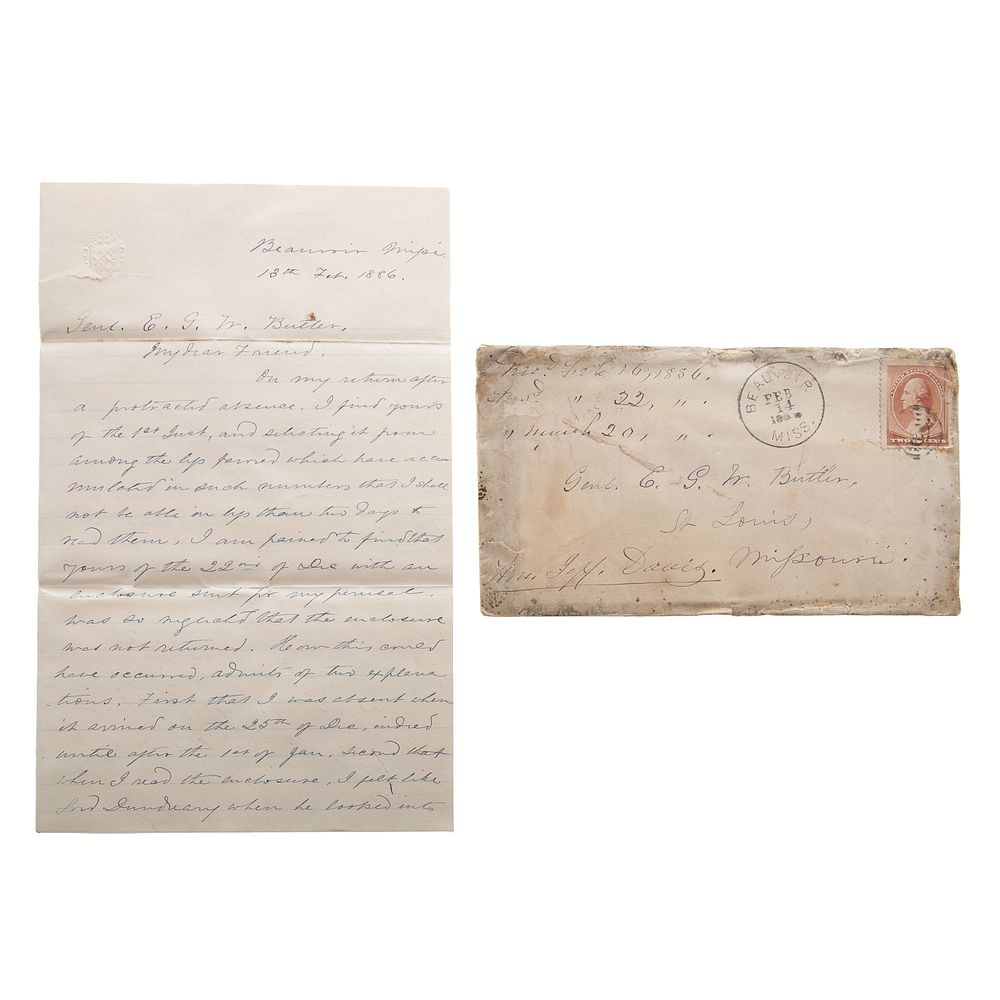 Beauvoir Missi.
13th Feb. 1886.
Genl. E. G. W. Butler,
My dear Friend,
On my return after
a protracted absence. I find yours
of the 1st Inst, and selecting it from
among the less favored which have accu
mulated in such numbers that I shall
not be able in less than two days to
read them, I am pained to find that
yours of the 22nd of Dec with an
enclosure sent for my perusal,
was so neglected that the enclosure
was not returned. How this could
have occurred, admits of two explana
-tions. First that I was absent when
it arrived on the 25th of Dec, indeed
until after the 1st of Jan, second that
when I read the enclosure, I felt like
Lord Dundreary when he looked into
Rec'd Feb 16, 1886.
Ansd. " 22, ".
" March 20, ".
BEAUVOIR
FEB
14
MISS.
TWO CENTS
Genl. E. G. W. Butler,
St Louis,
Missouri.
Hon. Jeff. Davis.